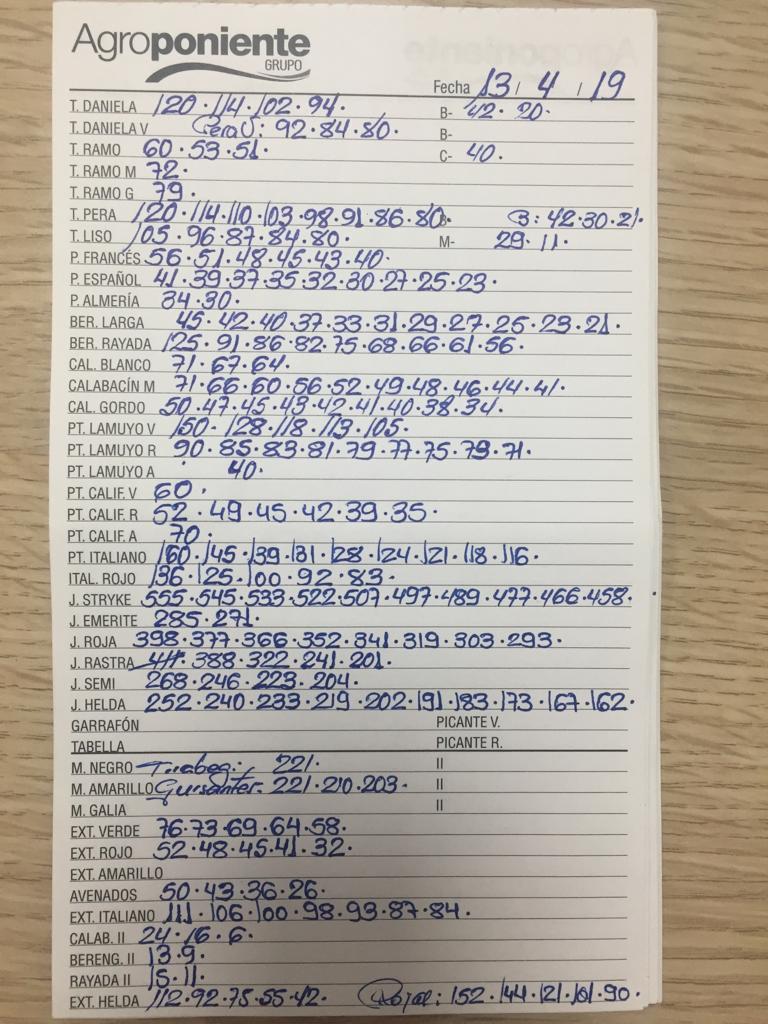 Agroponiente
GRUPO
Fecha 13 / 4 / 19
T. DANIELA 120 · 114 · 102 · 94 · B- 42 · 20 ·
T. DANIELA V 92 · 84 · 80 · B-
T. RAMO 60 · 53 · 51 · C- 40 ·
T. RAMO M 72 ·
T. RAMO G 79 ·
T. PERA 120 · 114 · 110 · 103 · 98 · 91 · 86 · 80 · B- B: 42 · 30 · 21 ·
T. LISO 105 · 96 · 87 · 84 · 80 · M- 29 · 11 ·
P. FRANCÉS 56 · 51 · 48 · 45 · 43 · 40 ·
P. ESPAÑOL 41 · 39 · 37 · 35 · 32 · 30 · 27 · 25 · 23 ·
P. ALMERÍA 34 · 30 ·
BER. LARGA 45 · 42 · 40 · 37 · 33 · 31 · 29 · 27 · 25 · 23 · 21 ·
BER. RAYADA 125 · 91 · 86 · 82 · 75 · 68 · 66 · 61 · 56 ·
CAL. BLANCO 71 · 67 · 64 ·
CALABACÍN M 71 · 66 · 60 · 56 · 52 · 49 · 48 · 46 · 44 · 41 ·
CAL. GORDO 50 · 47 · 45 · 43 · 42 · 41 · 40 · 38 · 34 ·
PT. LAMUYO V 150 · 128 · 118 · 113 · 105 ·
PT. LAMUYO R 90 · 85 · 83 · 81 · 79 · 77 · 75 · 73 · 71 ·
PT. LAMUYO A 40 ·
PT. CALIF. V 60 ·
PT. CALIF. R 52 · 49 · 45 · 42 · 39 · 35 ·
PT. CALIF. A 70 ·
PT. ITALIANO 160 · 145 · 139 · 131 · 128 · 124 · 121 · 118 · 116 ·
ITAL. ROJO 136 · 125 · 100 · 92 · 83 ·
J. STRYKE 555 · 545 · 533 · 522 · 507 · 497 · 489 · 477 · 466 · 458 ·
J. EMERITE 285 · 271 ·
J. ROJA 398 · 377 · 366 · 352 · 341 · 319 · 303 · 293 ·
J. RASTRA 411 · 388 · 322 · 241 · 201 ·
J. SEMI 268 · 246 · 223 · 204 ·
J. HELDA 252 · 240 · 233 · 219 · 202 · 191 · 183 · 173 · 167 · 162 ·
GARRAFÓN PICANTE V.
TABELLA PICANTE R.
M. NEGRO 221 · II
M. AMARILLO Guisantes · 221 · 210 · 203 · II
M. GALIA II
EXT. VERDE 76 · 73 · 69 · 64 · 58 ·
EXT. ROJO 52 · 48 · 45 · 41 · 32 ·
EXT. AMARILLO
AVENADOS 50 · 43 · 36 · 26 ·
EXT. ITALIANO 111 · 106 · 100 · 98 · 93 · 87 · 84 ·
CALAB. II 24 · 16 · 6 ·
BERENG. II 13 · 9 ·
RAYADA II 15 · 11 ·
EXT. HELDA 112 · 92 · 75 · 55 · 42 · 152 · 144 · 121 · 101 · 90 ·